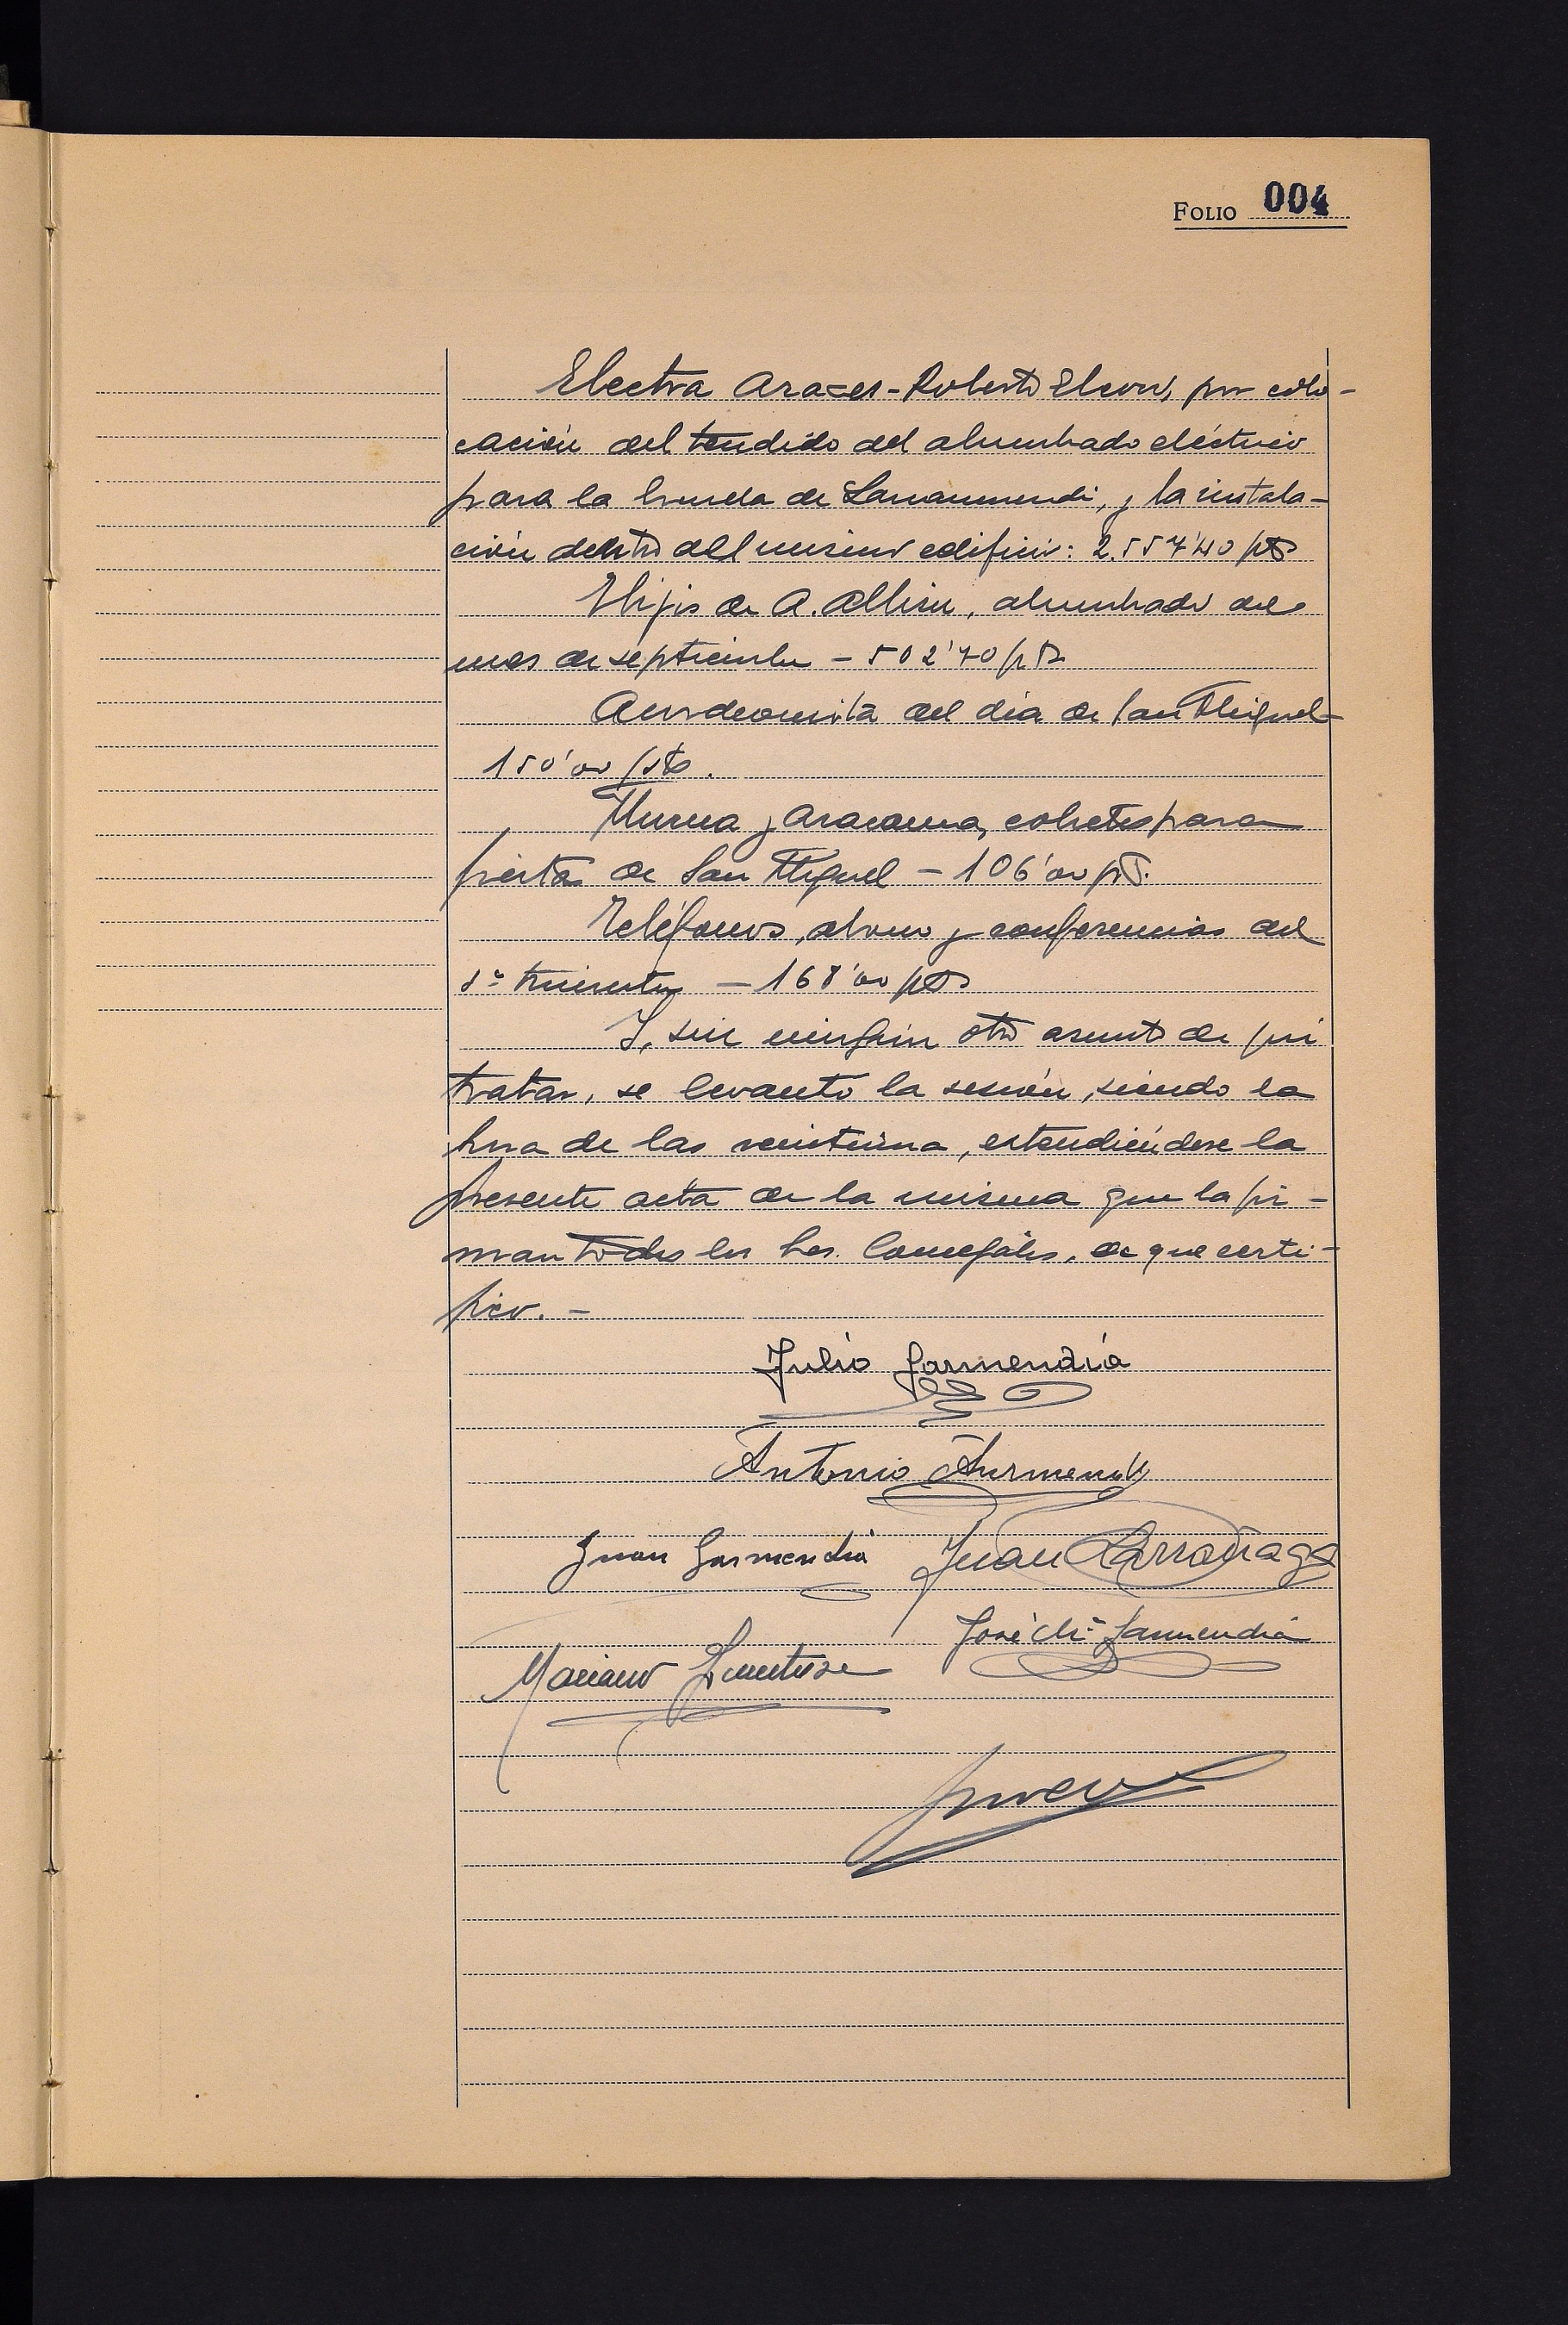 FOLIO 004
Electra Araxes - Roberto Elcoro, por colo-
cación del tendido del alumbrado eléctrico
para la ermita de Larraunmendi, y la instala-
ción dentro del mismo edificio: 2.557'40 pts
Hijos de A. Albisu, alumbrado del
mes de septiembre - 502'70 pts
Acordeonista del día de San Miguel -
150'00 pts.
Murua y Aracama, cohetes para
fiestas de San Miguel - 106'00 pts.
Teléfonos, abono y conferencias del
trimestre - 168'00 pts
Y, sin ningún otro asunto de que
tratar, se levanto la sesión, siendo la
hora de las veintiuna, extendiéndose la
presente acta de la misma que la fir-
man todos los Srs. Concejales, de que certi-
fico. -
Julio Garmendia
Antonio
Juan Garmendia Juan Larrañaga
José Mª Garmendia
Mariano